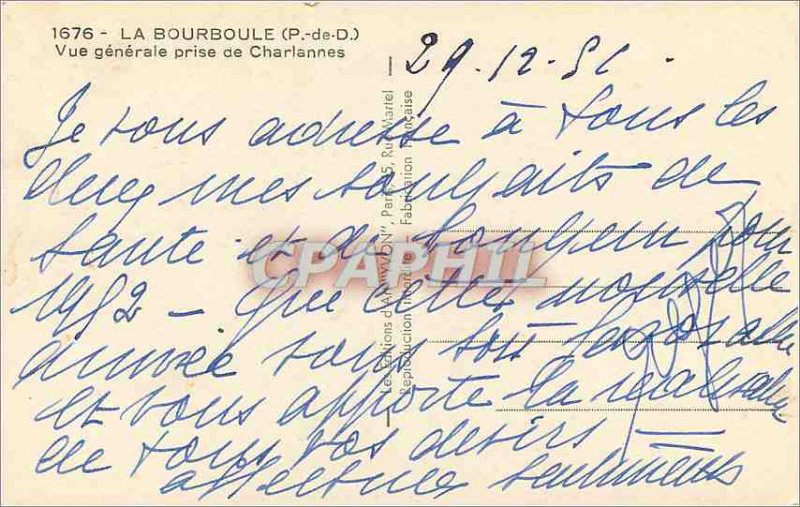 1676 - LA BOURBOULE (P.-de-D.)
Vue générale prise de Charlannes
29.12.51.
Je vous adresse à tous les
deux mes souhaits de
santé et de bonheur pour
1952 - Que cette nouvelle
année vous soit favorable
et vous apporte la réalisation
de tous vos désirs —
affectueux sentiments
Les Editions d'Art "YVON", Paris, 15, Rue Martel
Reproduction Interdite Fabrication Française
CPAPHIL